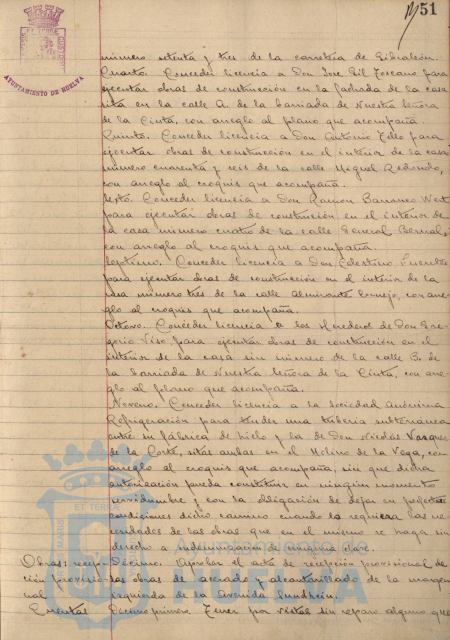 51
AYUNTAMIENTO DE HUELVA
número setenta y tres de la carretera de Gibraleón.
Cuarto. Conceder licencia a Don José Gil Toscano para
ejecutar obras de construcción en la fachada de la casa
sita en la calle A. de la barriada de Nuestra Señora
de la Cinta, con arreglo al plano que acompaña.
Quinto. Conceder licencia a Don Antonio Tello para
ejecutar obras de construcción en el interior de la casa
número cuarenta y seis de la calle Miguel Redondo,
con arreglo al croquis que acompaña.
Sexto. Conceder licencia a Don Ramon West
para ejecutar obras de construcción en el interior de
la casa número cuatro de la calle General Bernal,
con arreglo al croquis que acompaña.
Septimo. Conceder licencia a Don Celestino
para ejecutar obras de construcción en el interior de la
casa número tres de la calle Almirante Cornejo, con arre-
glo al croquis que acompaña.
Octavo. Conceder licencia a los Herederos de Don Gre-
gorio Viso para ejecutar obras de construcción en el
interior de la casa sin número de la calle B. de
la barriada de Nuestra Señora de la Cinta, con arre-
glo al plano que acompaña.
Noveno. Conceder licencia a la Sociedad Anónima
Refrigeración para tender una tubería subterránea
entre su fábrica de hielo y la de Don Nicolas Vazquez
de la Corte, sitas ambas en el Molino de la Vega, con
arreglo al croquis que acompaña, sin que dicha
autorización pueda constituir en ningún momento
servidumbre y con la obligación de dejar en perfectas
condiciones dicho camino cuando lo requiera las ne-
cesidades de las obras que en el mismo se haga sin
derecho a indemnización de ninguna clase.
Obras: recep- Décimo. Aprobar el acta de recepción provisional de
ción provisio- las obras de acerado y alcantarillado de la margen
nal izquierda de la Avenida Sundheim.
Cuentas Décimo primero. Tener por vistas sin reparo alguno que
ET TERRA
Ayuntamiento de
HUELVA